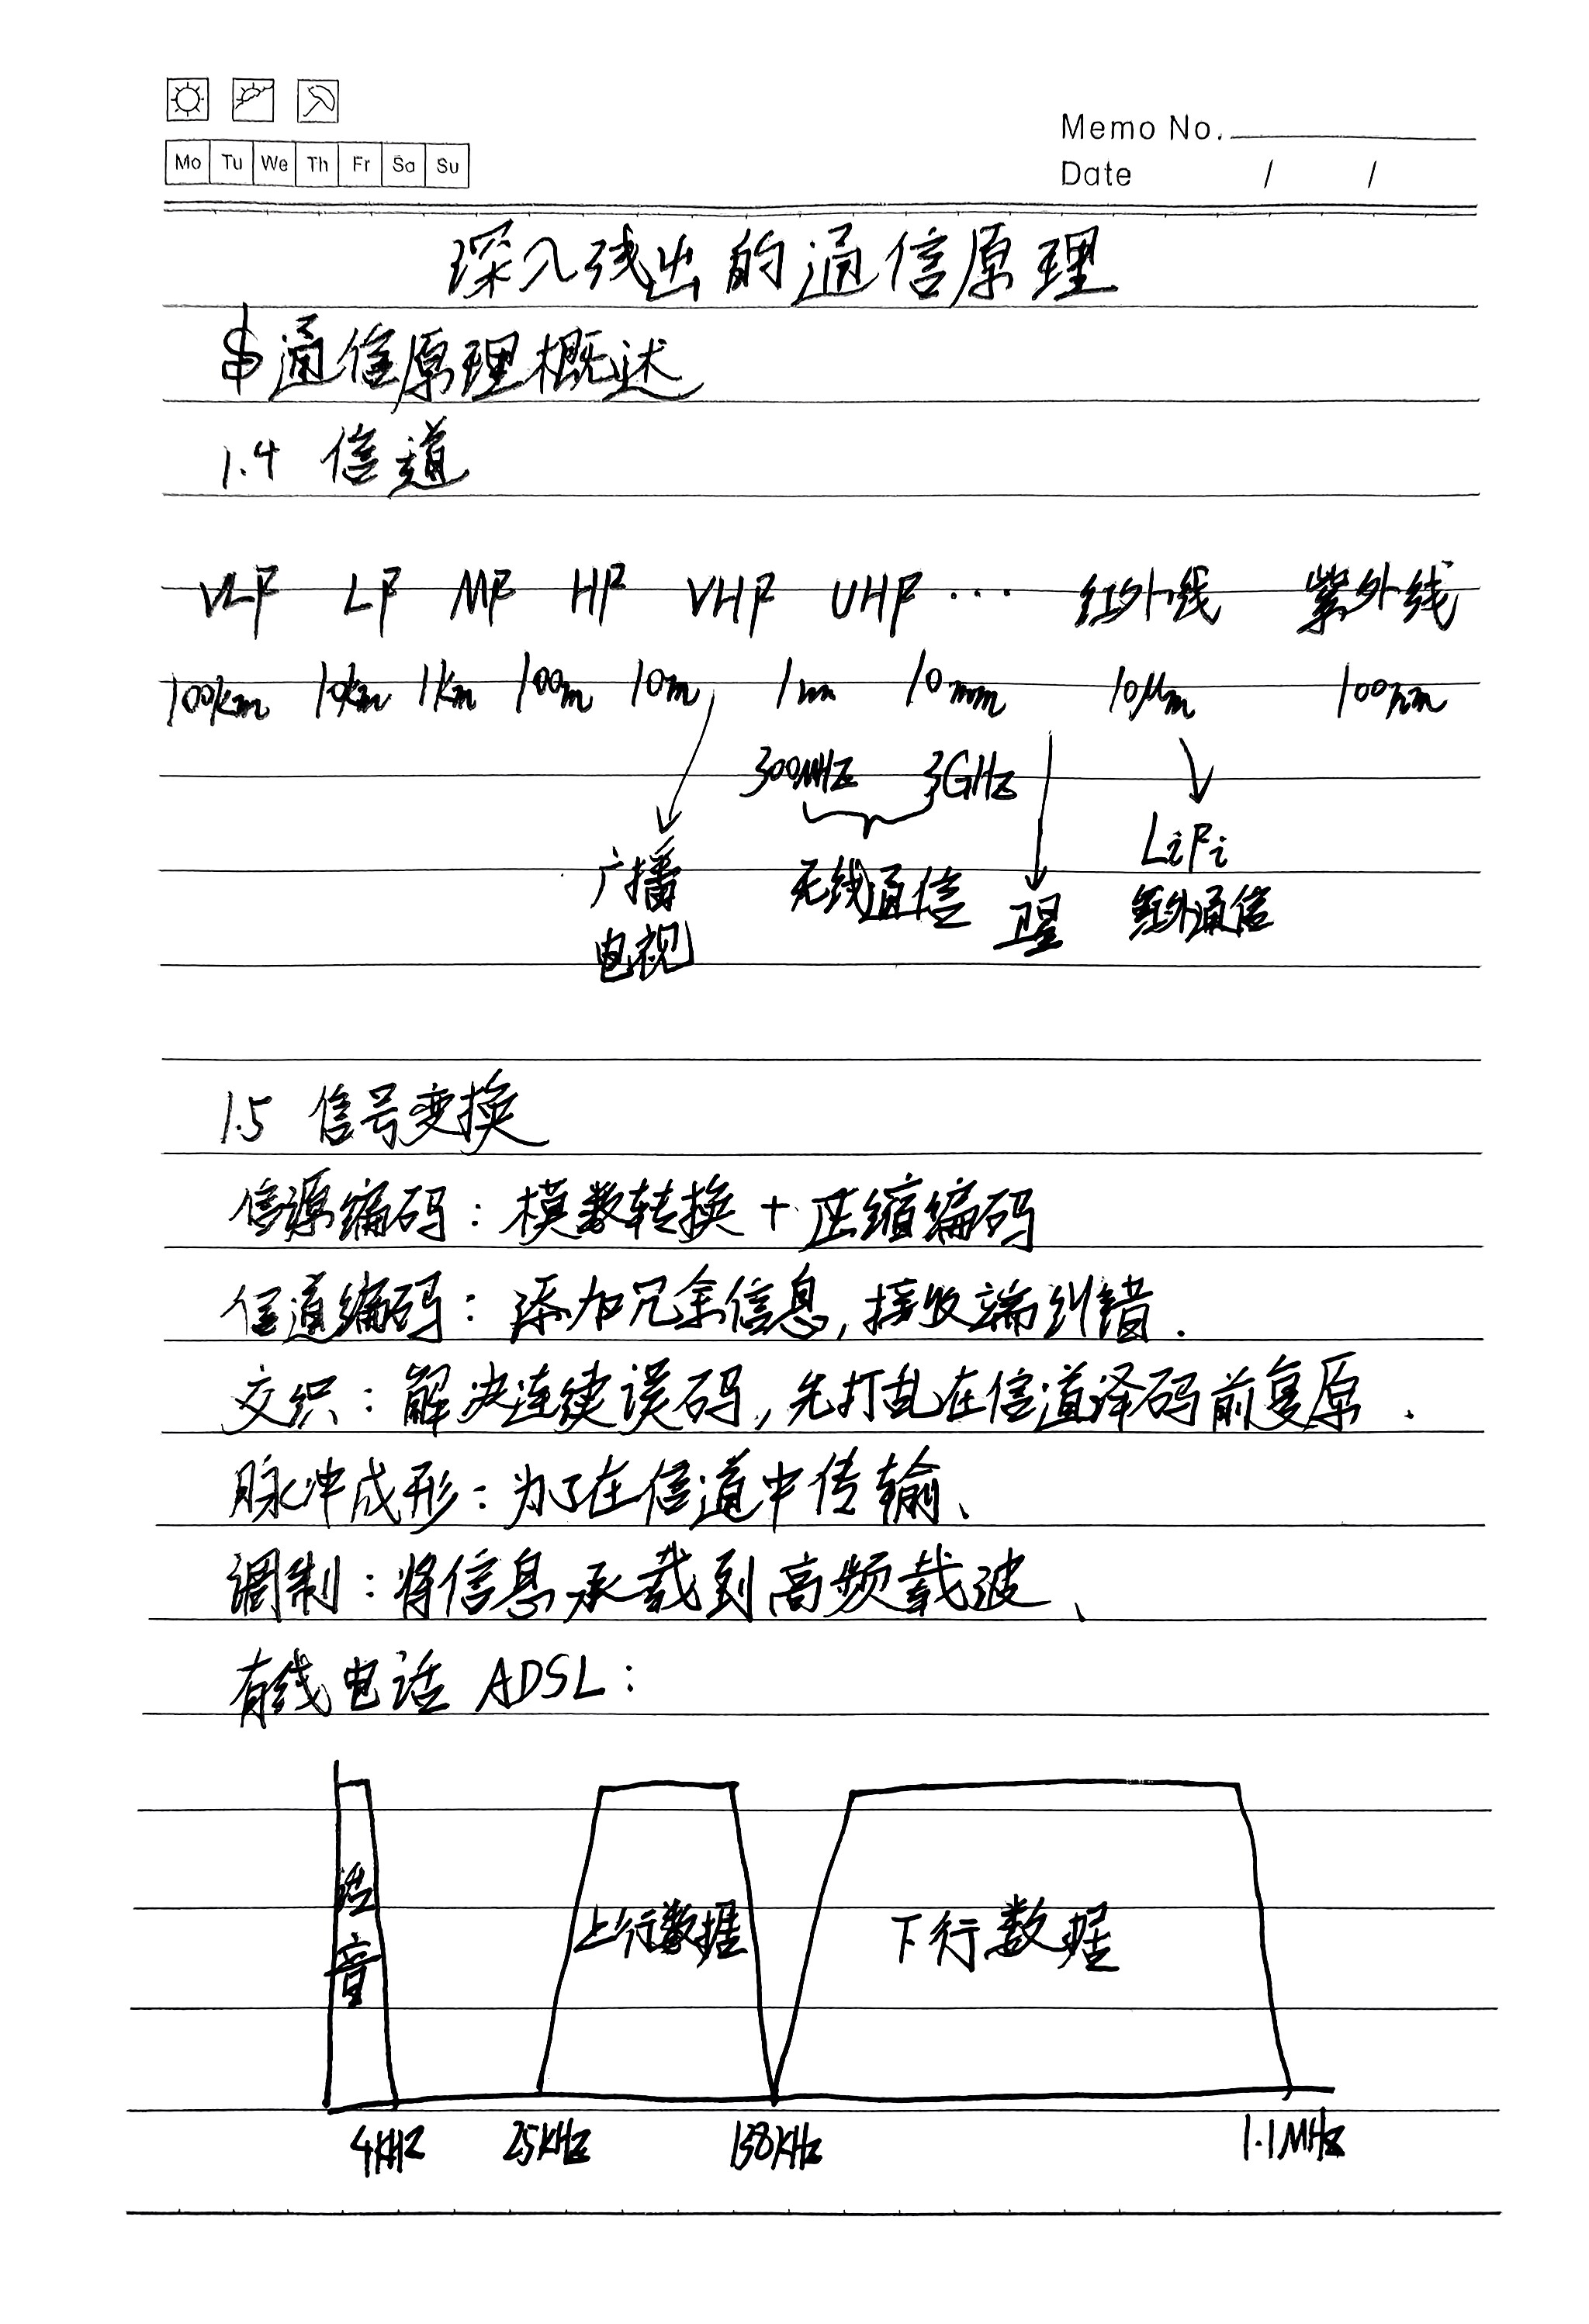 Mo Tu We Th Fr Sa Su
Memo No.
Date / /
深入浅出的通信原理
§通信原理概述
1.4 信道
VLF LF MF HF VHF UHF ··· 红外线 紫外线
100km 10km 1km 100m 10m 1m 10mm 10μm 100nm
300MHz 3GHz
广播
电视
无线通信
卫星
LiFi
红外通信
1.5 信号变换
信源编码：模数转换 + 压缩编码
信道编码：添加冗余信息, 接收端纠错.
交织：解决连续误码, 先打乱在信道译码前复原.
脉冲成形：为了在信道中传输、
调制：将信息承载到高频载波、
有线电话 ADSL：
话音
上行数据
下行数据
4KHZ 25KHz 138KHz 1.1MHz